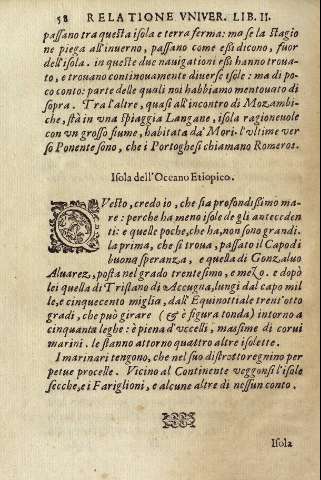 58 RELATIONE VNIVER. LIB. II.
passano tra questa isola e terra ferma: ma se la stagio
ne piega all'inuerno, passano come eßi dicono, fuor
dell'isola. in queste due nauigationi eßi hanno troua-
to, e trouano continouamente diuerse isole: ma di po-
co conto: parte delle quali noi habbiamo mentouato di
sopra. Tra l'altre, quasi all'incontro di Mozambi-
che, stà in vna spiaggia Langane, isola ragioneuole
con vn grosso fiume, habitata da' Mori. l'vltime ver
so Ponente sono, che i Portoghesi chiamano Romeros.
Isola dell'Oceano Etiopico.
QVesto, credo io, che sia profondissimo ma-
re: perche ha meno isole de gli anteceden
ti: e quelle poche, che ha, non son grandi.
la prima, che si troua, passato il Capo di
buona speranza, e quella di Gonzaluo
Aluarez, posta nel grado trentesimo, e mezo. e dopò
lei quella di Tristano de Accugna, lungi dal capo mil
le, e cinquecento miglia, dall'Equinottiale trent'otto
gradi, che può girare (& è figura tonda) intorno a
cinquanta leghe: è piena d'vccelli, massime di corui
marini. le stanno attorno quattro altre isolette.
I marinari tengono, che nel suo distretto regnino per
petue procelle. Vicino al Continente veggonsi l'isole
secche, e i Fariglioni, e alcune altre di nessun conto.
Isola